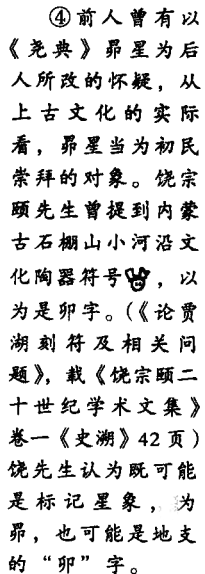 ④前人曾有以
《尧典》昴星为后
人所改的怀疑，从
上古文化的实际
看，昴星当为初民
崇拜的对象。饶宗
颐先生曾提到内蒙
古石棚山小河沿文
化陶器符号，以
为是卯字。(《论贾
湖刻符及相关问
题》，载《饶宗颐二
十世纪学术文集》
卷一《史溯》42页)
饶先生认为既可能
是标记星象，为
昴，也可能是地支
的“卯”字。